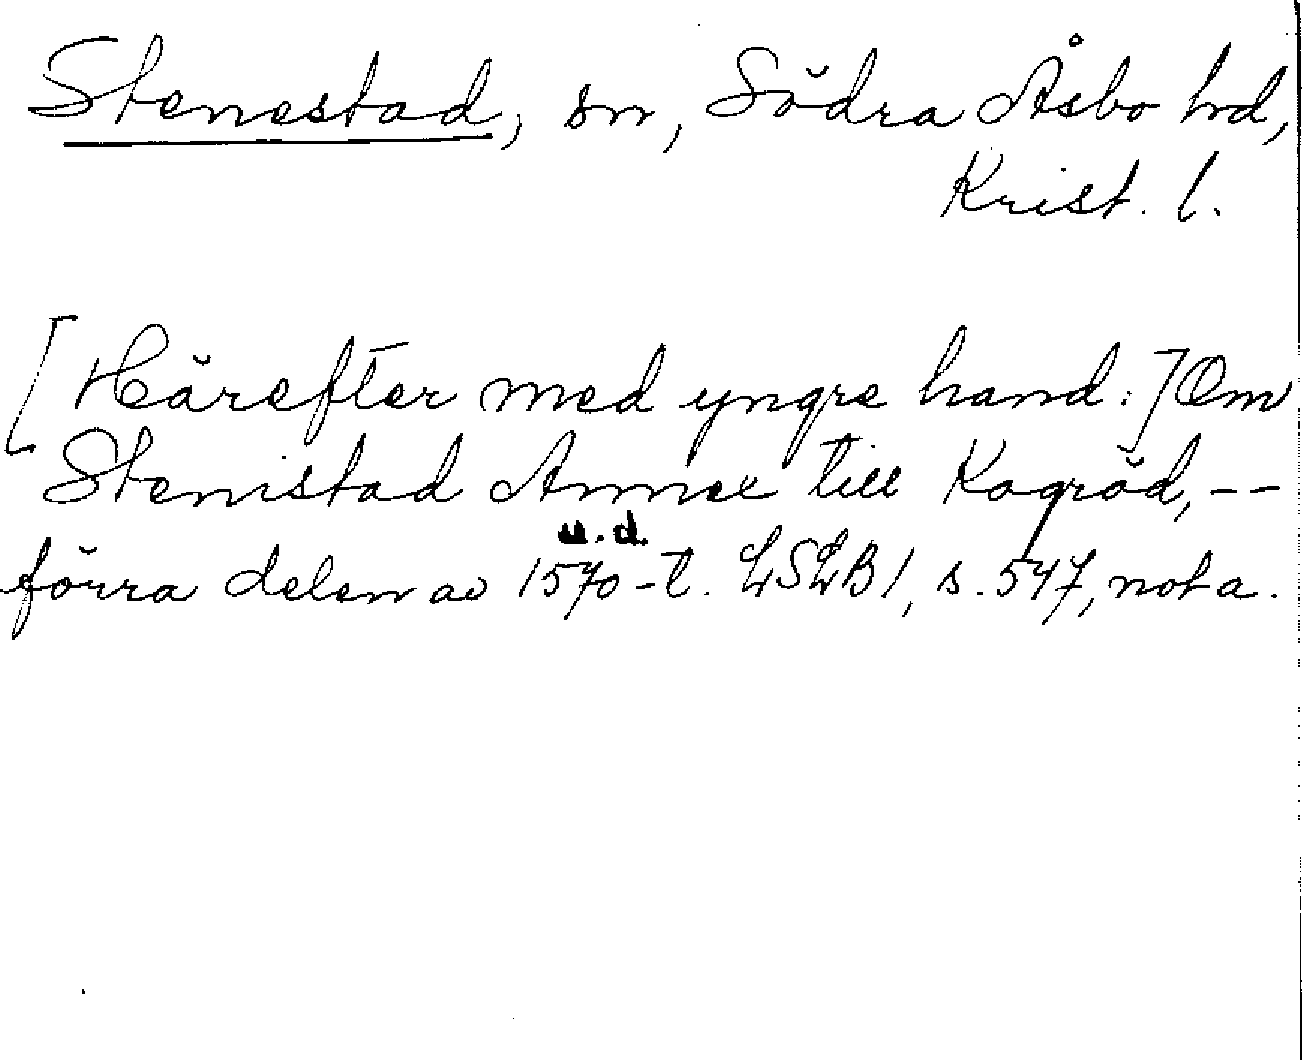 Stenestad, sn, Södra Åsbo hd,
Krist. l.
[Härefter med yngre hand:] Om
Stenistad Annex till Kogröd, --
u.d.
förra delen av 1570-t. LSLB 1, s. 547, not a.